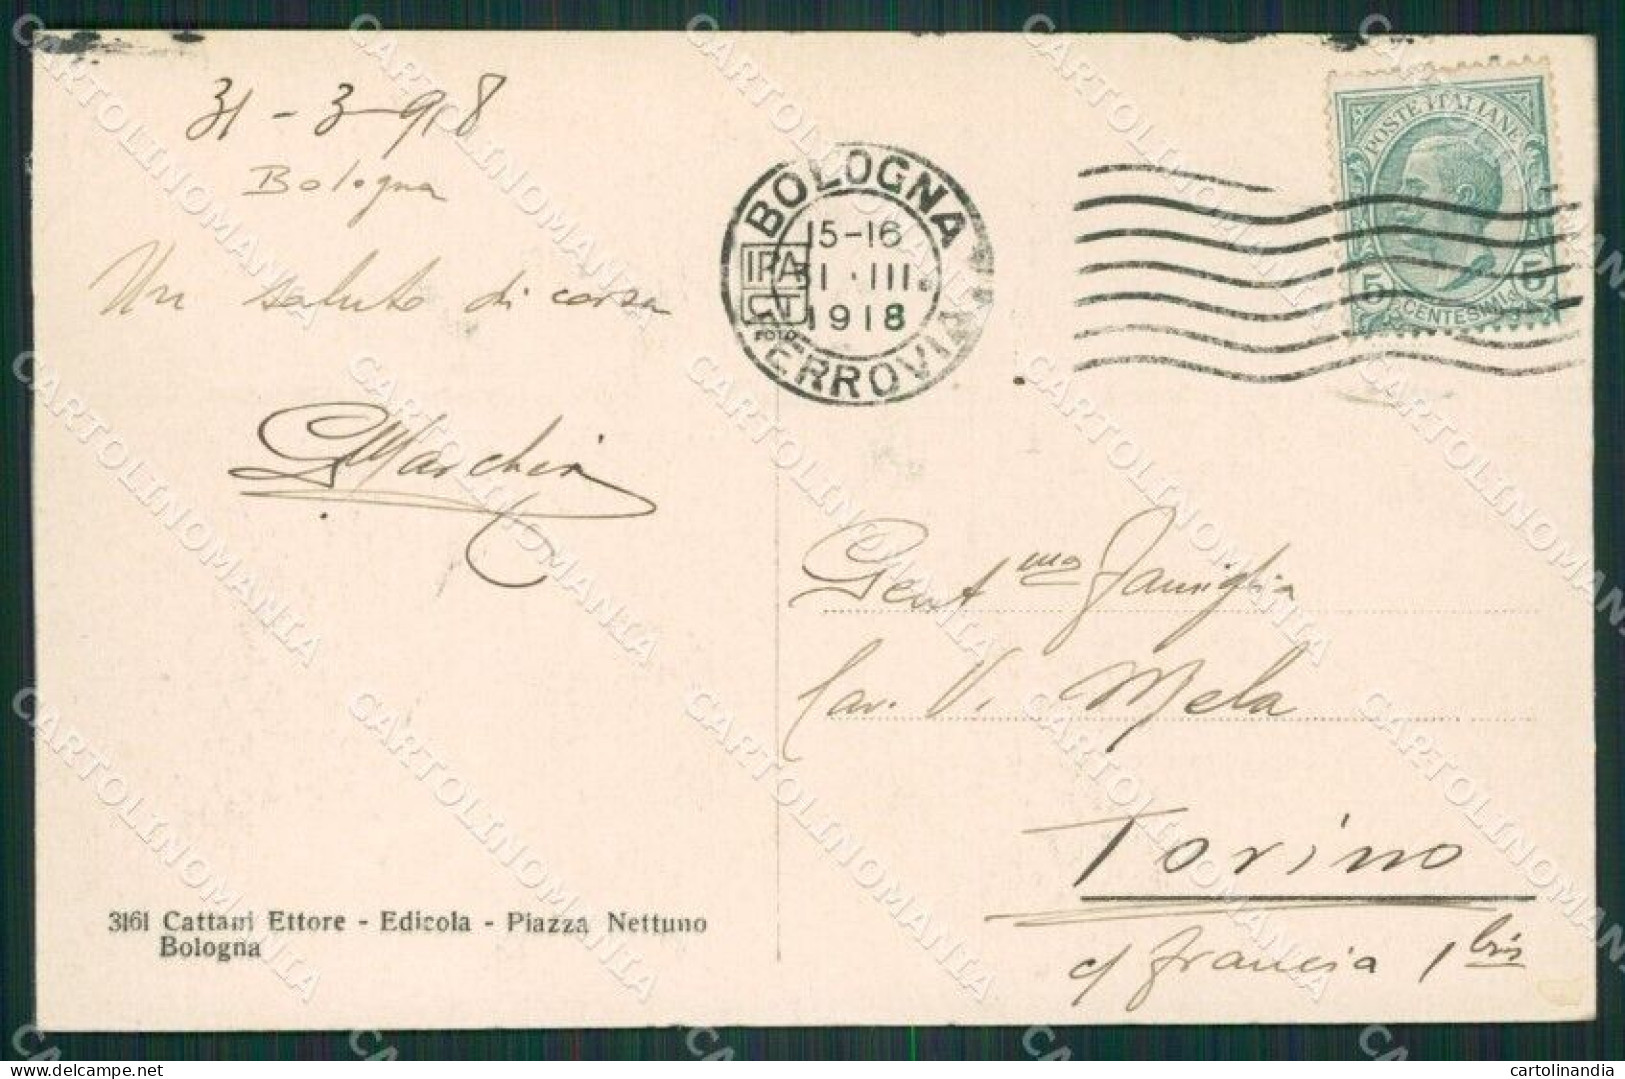 31-3-918
Bologna
Un saluto di corsa
GMarchini
BOLOGNA
15-16
31 · III.
1918
FERROVIA
POSTE ITALIANE
5 CENTESIMI 5
Gent.ma Famiglia
Cav. V. Mela
Torino
c/ Francia 1 bis
3161 Cattani Ettore - Edicola - Piazza Nettuno
Bologna
CARTOLINOMANIA
cartolinandia